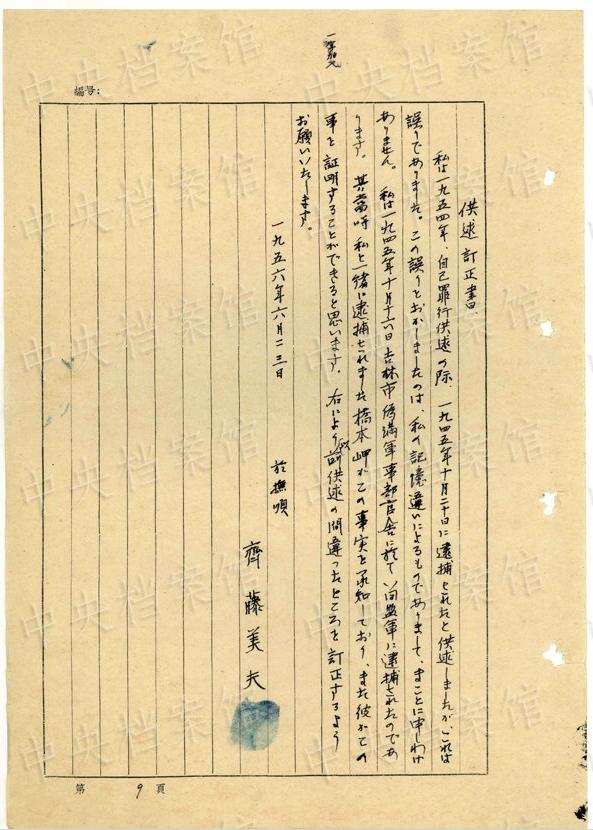 編号:
供述訂正書
私は一九五四年、自己罪行供述の際、一九四五年十月二十日に逮捕されたと供述しましたが、これは
誤りでありました。この誤りをおかしましたのは、私の記憶違いによるものでありまして、まことに申しわけ
ありません。私は一九四五年十月十六日吉林市偽満軍事部官舎に於て、同盟軍に逮捕されたのであ
ります。其当時私と一緒に逮捕されました橋本岬がこの事実を承知しており、また彼がこの
事を証明することができると思います。右により前供述の間違ったところを訂正するよう
お願いいたします。
一九五六年六月二三日
於撫順
齊藤美夫
第 9 頁
中央档案馆